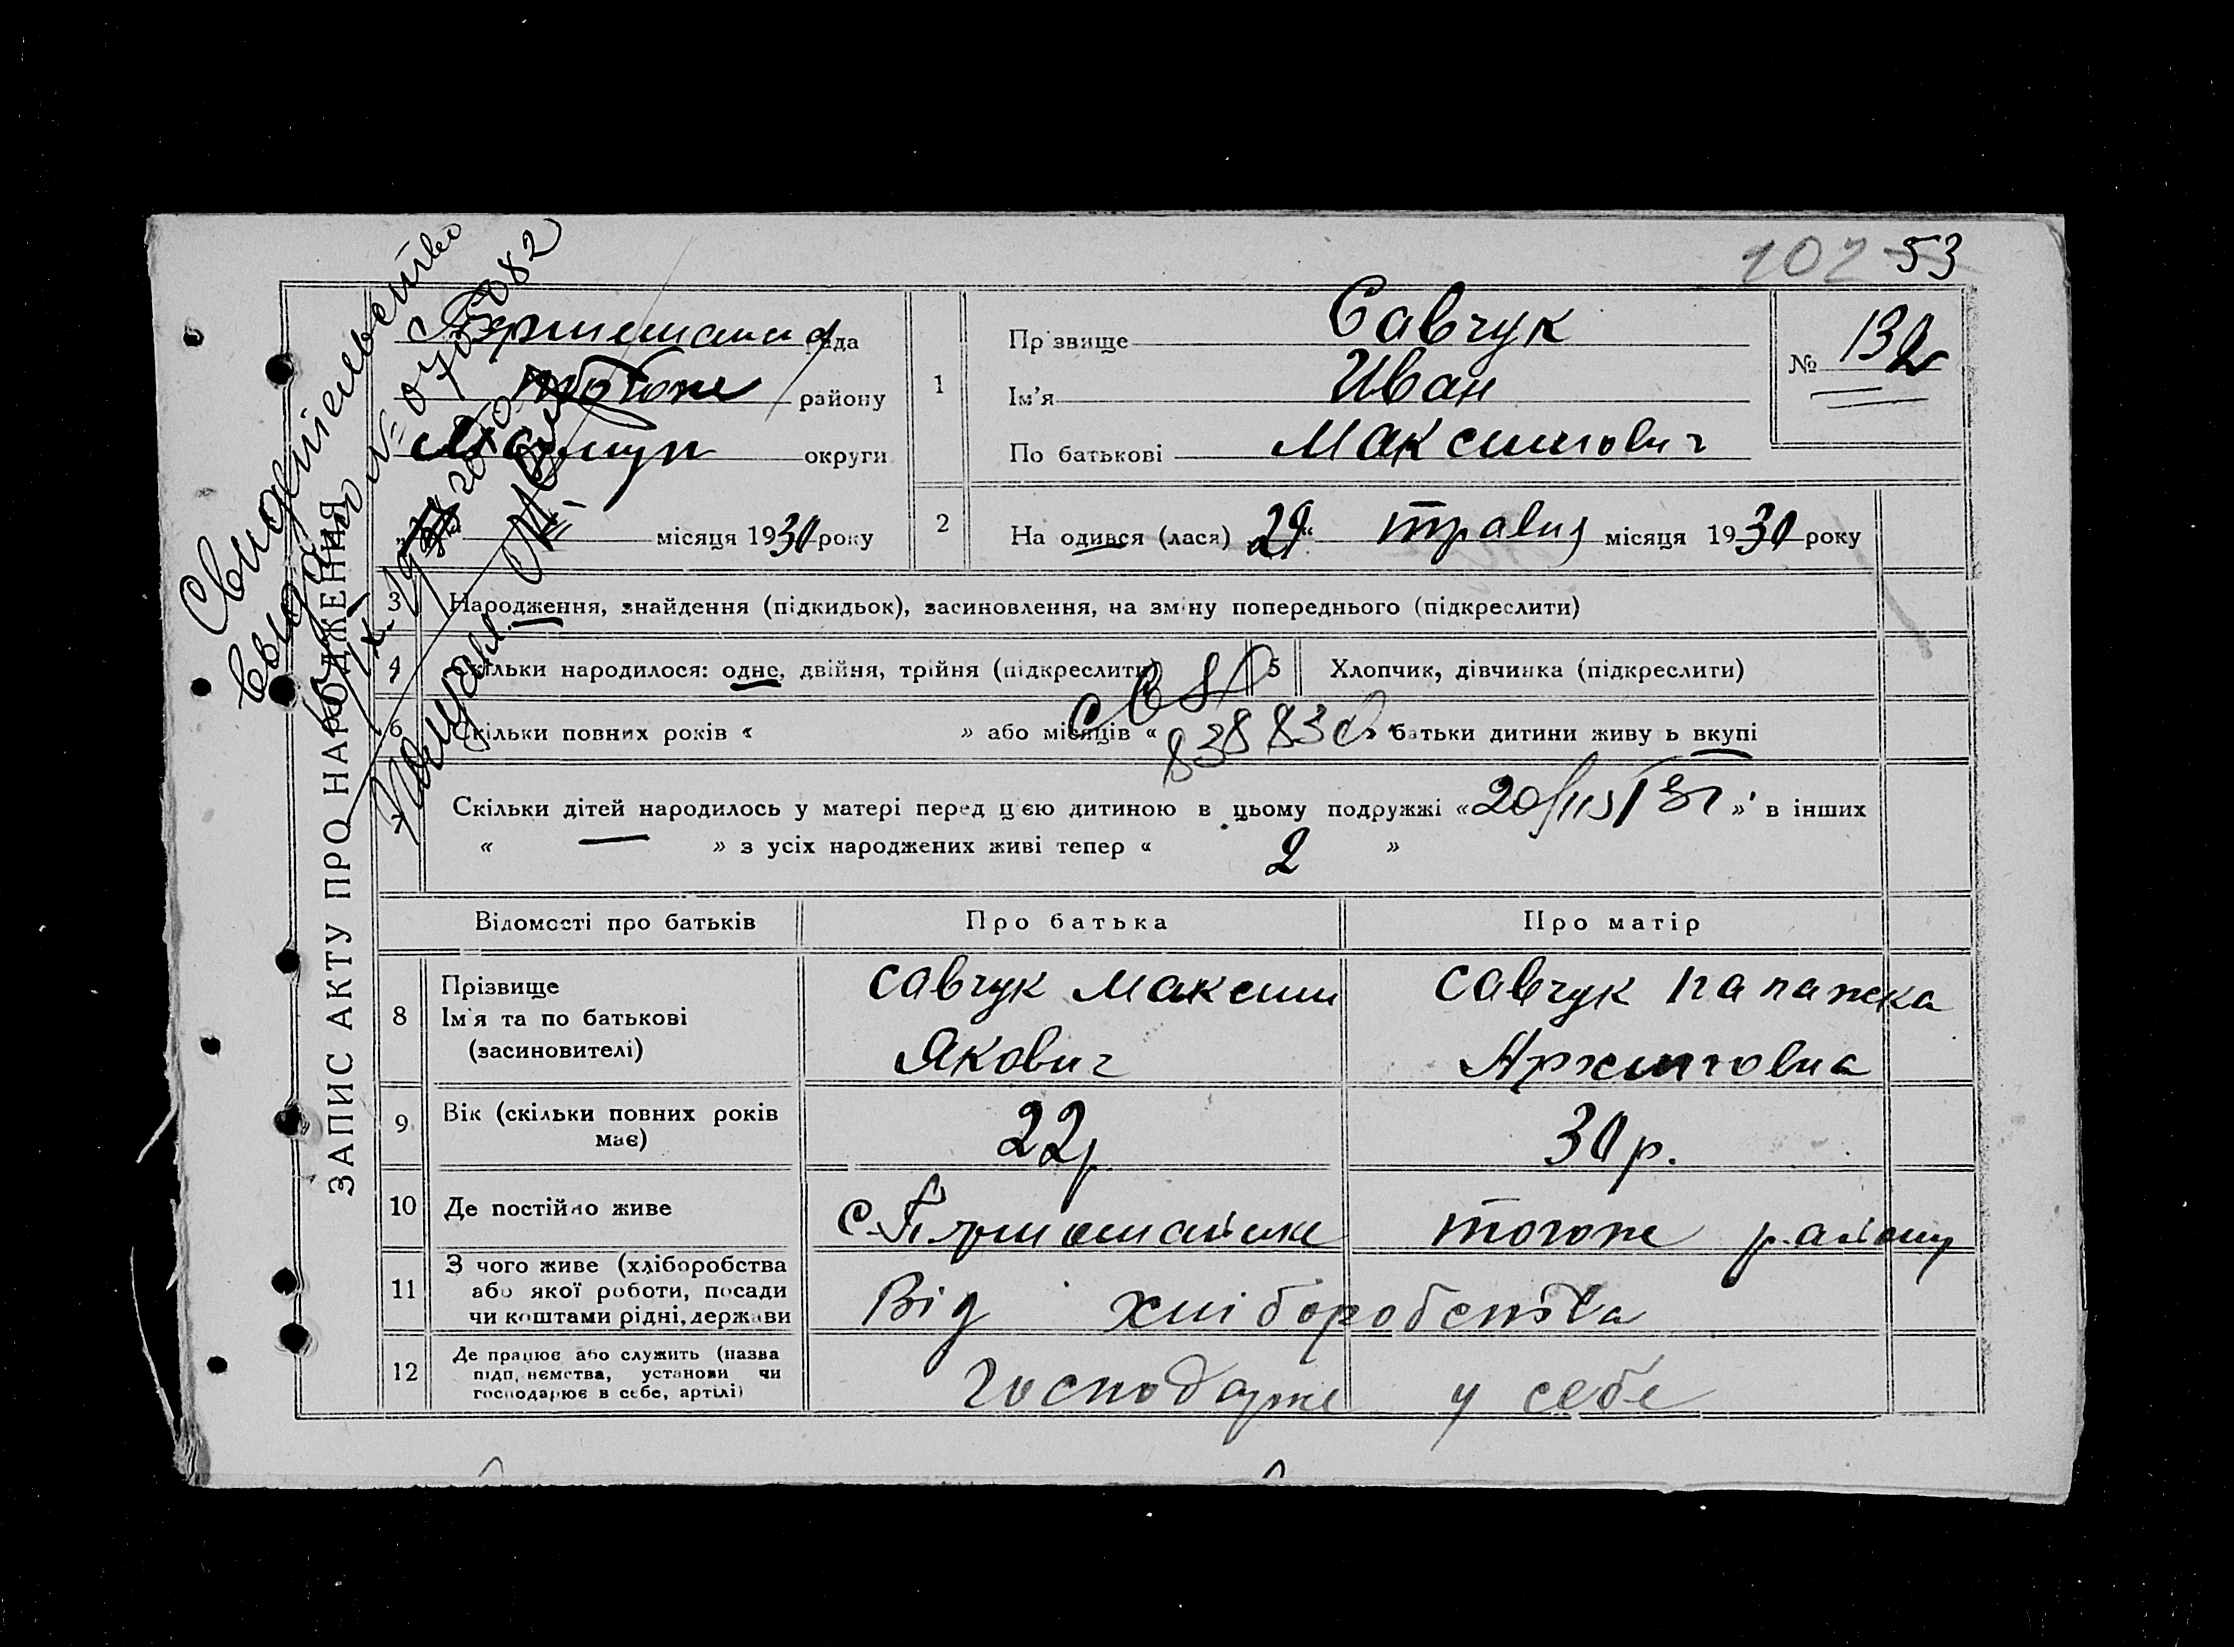 102 53
Свидетельство
выдано № 070082
ЗАПИС АКТУ ПРО НАРОДЖЕННЯ
рада
району
округи
місяця 1930 року
1
Прізвище Савчук
Ім'я Иван
По батькові Максимович
№ 132
2
На одився (лася) 29 травня місяця 1930 року
3 Народження, знайдення (підкидьок), засиновлення, на зміну попереднього (підкреслити)
4 Скільки народилося: одне, двійня, трійня (підкреслити) 5 Хлопчик, дівчинка (підкреслити)
6 Скільки повних років « » або місяців « » батьки дитини живу ь вкупі
7 Скільки дітей народилось у матері перед цією дитиною в цьому подружжі « » в інших
« — » з усіх народжених живі тепер « 2 »
Відомості про батьків Про батька Про матір
8 Прізвище
Ім'я та по батькові
(засиновителі)
Савчук Максим
Якович
Савчук Палажка
9 Вік (скільки повних років
має)
22р
30р.
10 Де постійно живе
тогоже району
11 З чого живе (хліборобства
або якої роботи, посади
чи коштами рідні, держави
Від хліборобства
12 Де працює або служить (назва
підприємства, установи чи
господарює в себе, артілі)
у себе